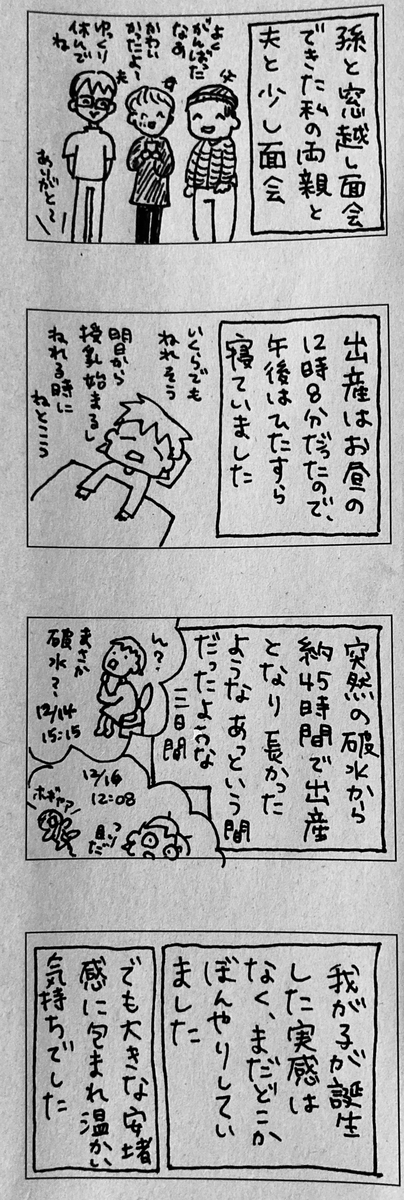 孫と窓越し面会
できた私の両親と
夫と少し面会
よく
がんばった
なぁ
かわい
かったよ〜
ゆっくり
休んで
ね
父
母
夫
ありがと〜
出産はお昼の
12時8分だったので、
午後はひたすら
寝ていました
いくらでも
ねれそう
明日から
授乳始まるし
ねれる時に
ねとこう
突然の破水から
約45時間で出産
となり長かった
ようなあっという間
だったような
三日間
ん?
まさか
破水?
12/14
15:15
12/16
12:08
ホギャア
我が子が誕生
した実感は
なく、まだどこか
ぼんやりしてい
ました
でも大きな安堵
感に包まれ温かい
気持ちでした